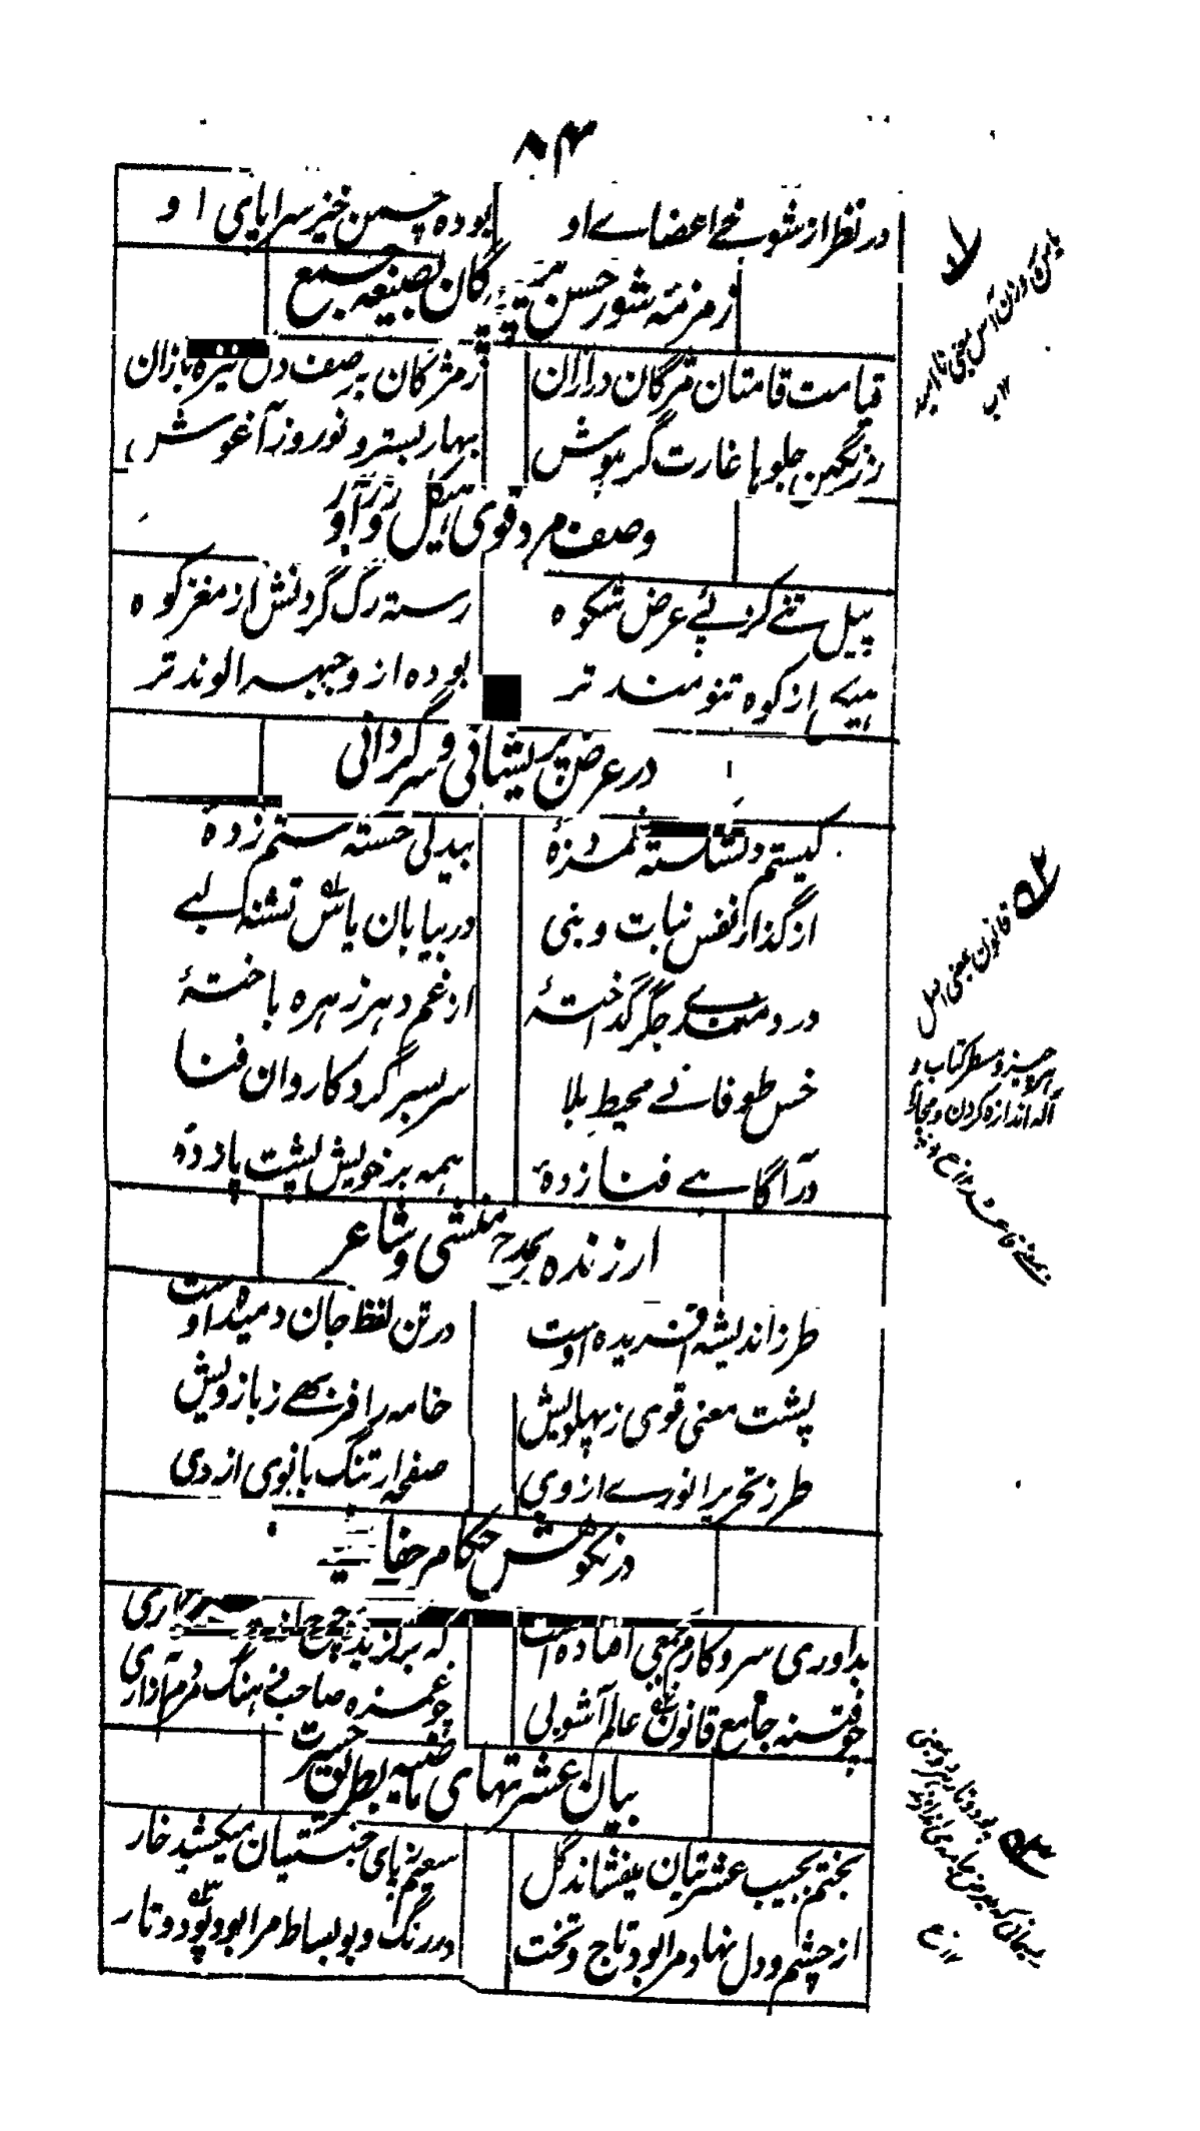 ۸۴
در نظر از شوخے اعضاے او بوده چمن خیز سراپای او
زمزمهٔ شور حسن بصیغه جمع
قیامت قامتان مژگان درازان زمژگان بر صف دل نیزه بازان
زرنگین جلوہا غارتگر ہوش بہار بستر و نوروز آغوش
وصف مرد قوی ہیکل و زور آور
پیل تنے کز پئے عرض شکوه رسته رگ گردنش از مغز کوه
ہیکل از کوه تنومند تر بوده از وجبہه الوند تر
در عرض پریشانی و سرگردانی
کیستم دلشکستهٔ غمزدهٔ بیدلی خستهٔ ستم زدهٔ
از گداز نفس نبات و بنی در بیابان یاس تشنه لبے
دردمندے جگر گداختهٔ از غم دہر زہره باختهٔ
خس طوفانے محیط بلا سر بسر گرد کاروان فنا
در آگاہے فنا زدهٔ ہمه بر خویش پشت پا زدهٔ
ارزنده بمدح منشی و شاعر
طرز اندیشه آفریده اوست در تن لفظ جان دمیده اوست
پشت معنی قوی ز پہلویش خامه را فربہے ز بازویش
طرز تحریر را نوی از وی صفحه ارتنگ مانوی از وی
در نکوہش حکام
بداوری سر و کارم بجمعی افتاده است که
چو فتنه جامع قانون عالم آشوبی چو غمزه صاحب فرہنگ مردم آزاری
بیان عشرتہای بطریق حسرت
بختم بجیب عشرتیان میفشاند گل سعیم ز پای جنتیان میکشید خار
از چشم و دل نہاد مرا بود تاج و تخت در رنگ و بو بساط مرا بود پود و تار
یاس بر وزن آس بمعنی نا امید
۵۲ قانون بمعنی اصل
ہر چیز و مسطر کتاب و
آله اندازه کردن و مجازا
بمعنی قاعده
۵۳